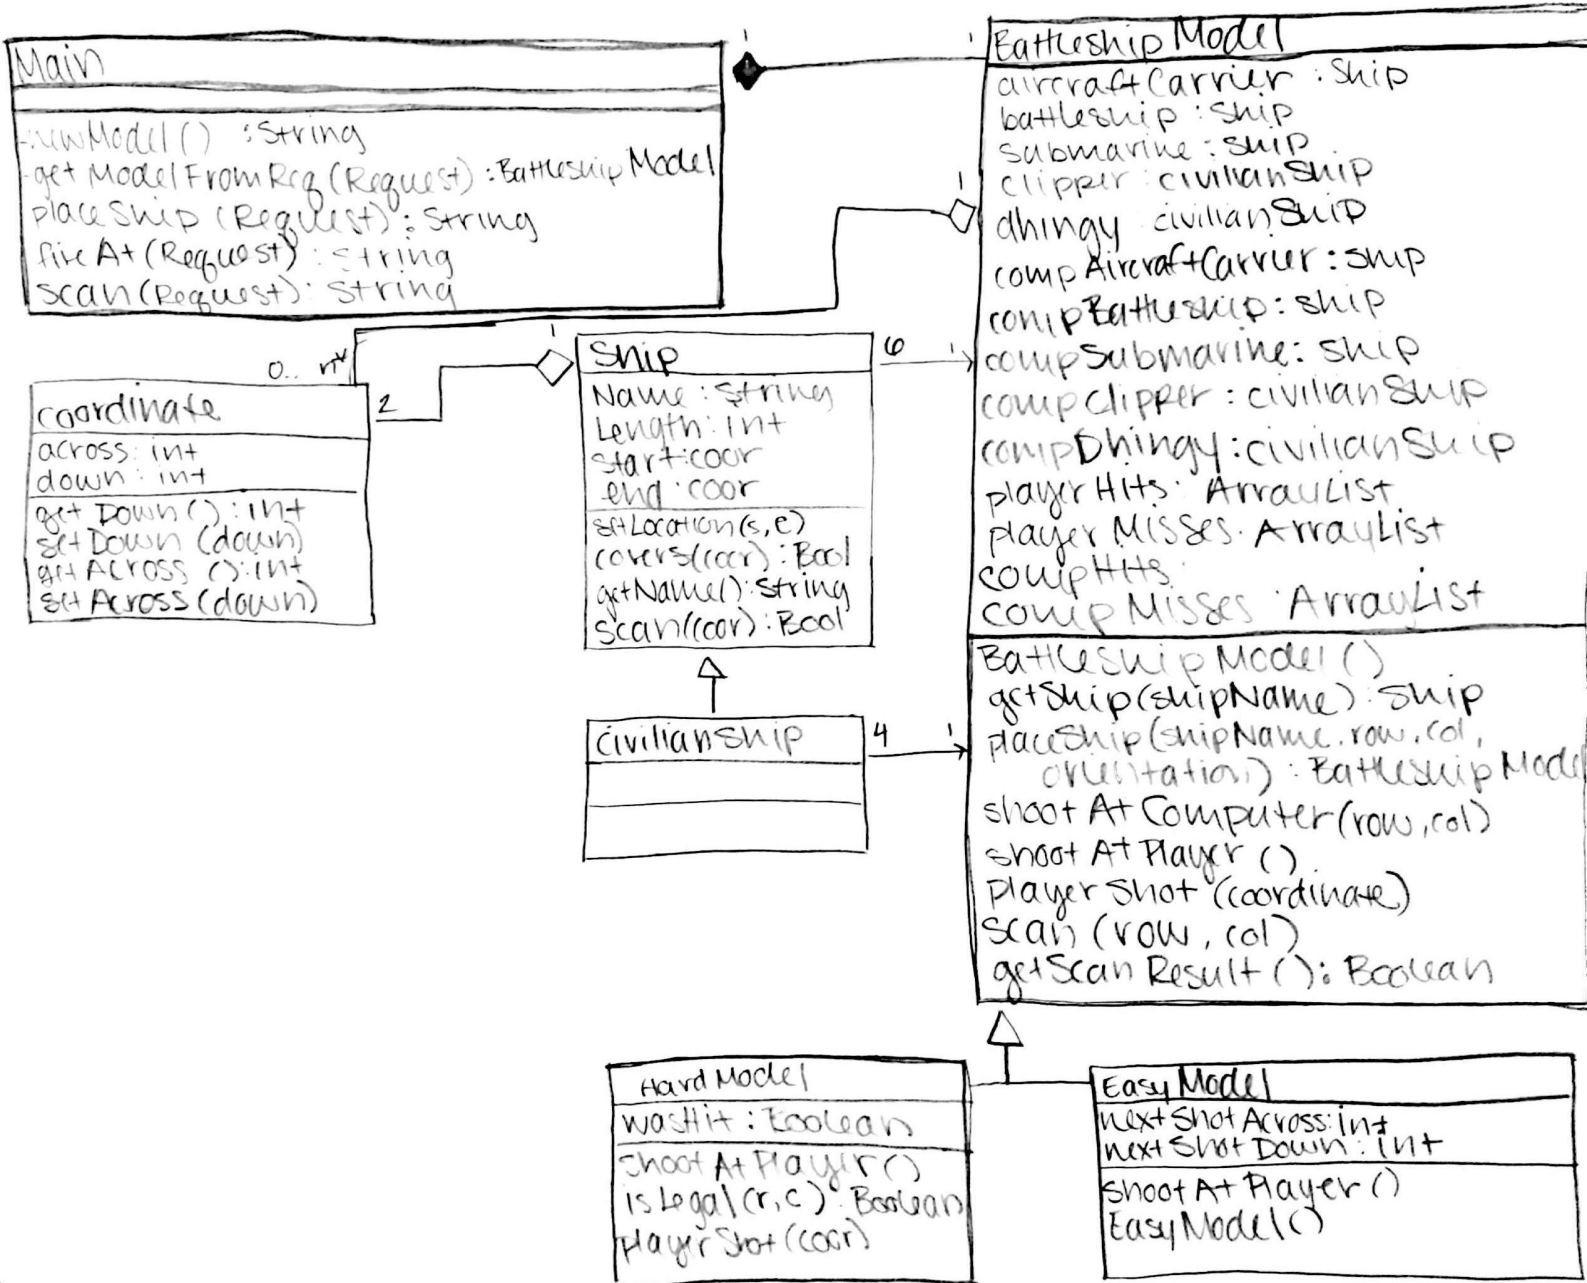 Main
newModel() : String
getModelFromReq(Request) : BattleshipModel
placeShip(Request) : String
fireAt(Request) : String
scan(Request) : String
1
1
BattleshipModel
aircraftCarrier : Ship
battleship : Ship
submarine : Ship
clipper : civilianShip
dhingy : civilianShip
compAircraftCarrier : Ship
compBattleship : Ship
compSubmarine : Ship
compClipper : civilianShip
compDhingy : civilianShip
playerHits : ArrayList
playerMisses : ArrayList
compHits :
compMisses : ArrayList
BattleshipModel()
getShip(shipName) : Ship
placeShip(shipName, row, col,
orientation) : BattleshipModel
shootAtComputer(row, col)
shootAtPlayer()
playerShot(coordinate)
scan(row, col)
getScanResult() : Boolean
1
1
0..
2
coordinate
across : int
down : int
getDown() : int
setDown(down)
getAcross() : int
setAcross(down)
Ship
Name : String
Length : int
start : coor
end : coor
setLocation(s, e)
covers(coor) : Bool
getName() : String
scan(coor) : Bool
6
1
civilianShip
4
1
HardModel
wasHit : Boolean
shootAtPlayer()
isLegal(r, c) : Boolean
playerShot(coor)
EasyModel
nextShotAcross : int
nextShotDown : int
shootAtPlayer()
EasyModel()